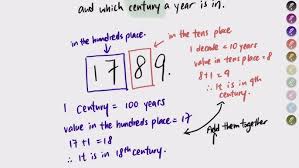 and which century a year is in.
in the hundreds place.
in the tens place
17 89.
1 decade = 10 years
value in tens place = 8
8+1 = 9
∴ It is in 9th
century.
1 century = 100 years
value in the hundreds place = 17
17 +1 = 18
∴ It is in 18th century.
Add them together